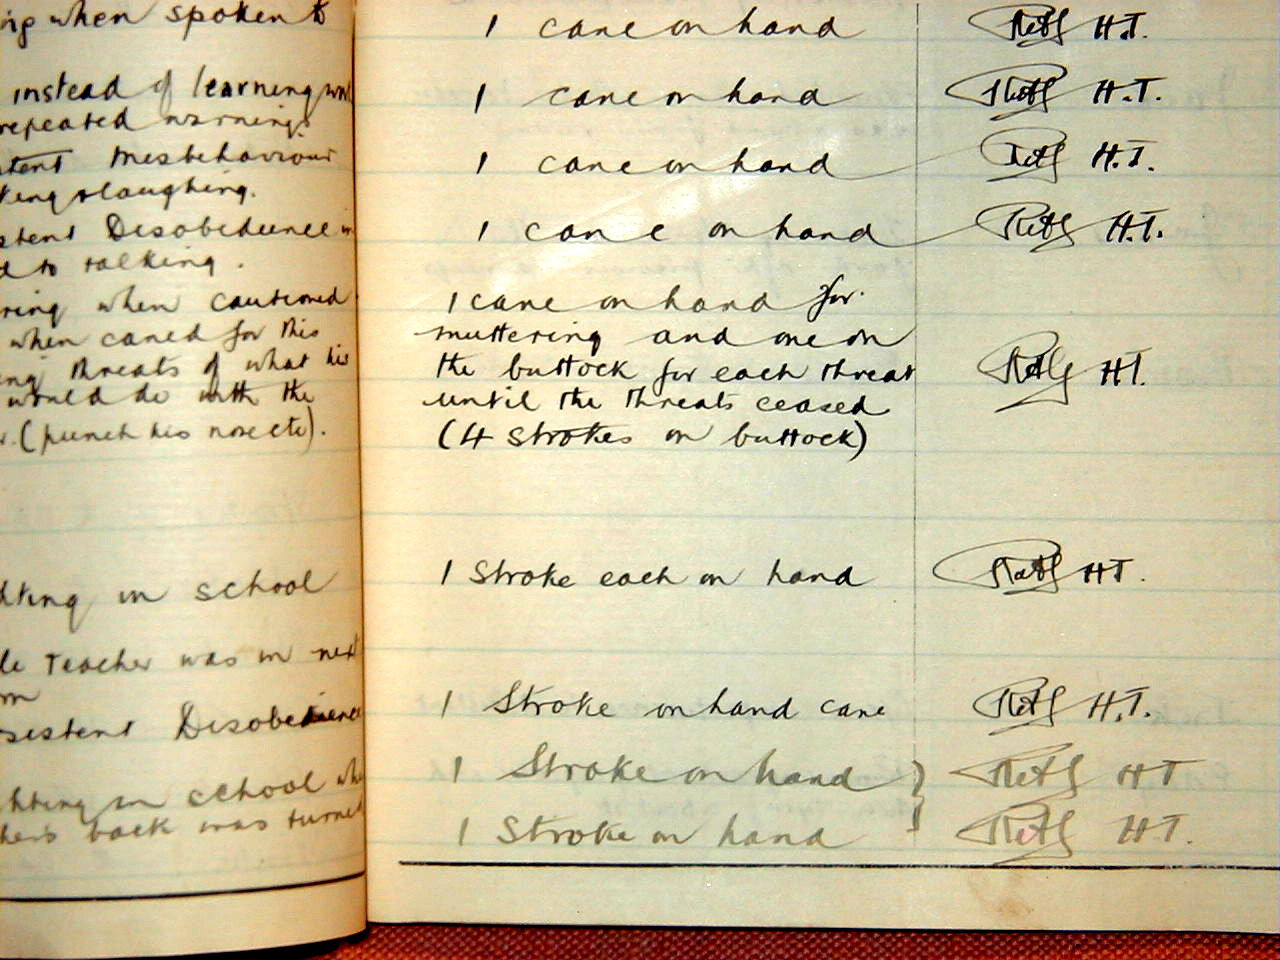 ing when spoken to
instead of learning work
repeated warnings.
stent misbehaviour
king & laughing.
stent Disobedience in
d to talking.
ring when cautioned
when caned for this
ing threats of what his
would do with the
r. (punch his nose etc).
hting in school
le Teacher was in next
m
sistent Disobedience
hting in school whe
hers back was turned
1 cane on hand H.T.
1 cane on hand H.T.
1 cane on hand H.T.
1 cane on hand H.T.
1 cane on hand for
muttering and one on
the buttock for each threat H.T.
until the threats ceased
(4 strokes on buttock)
1 Stroke each on hand H.T.
1 Stroke on hand cane H.T.
1 Stroke on hand H.T
1 Stroke on hand H.T.